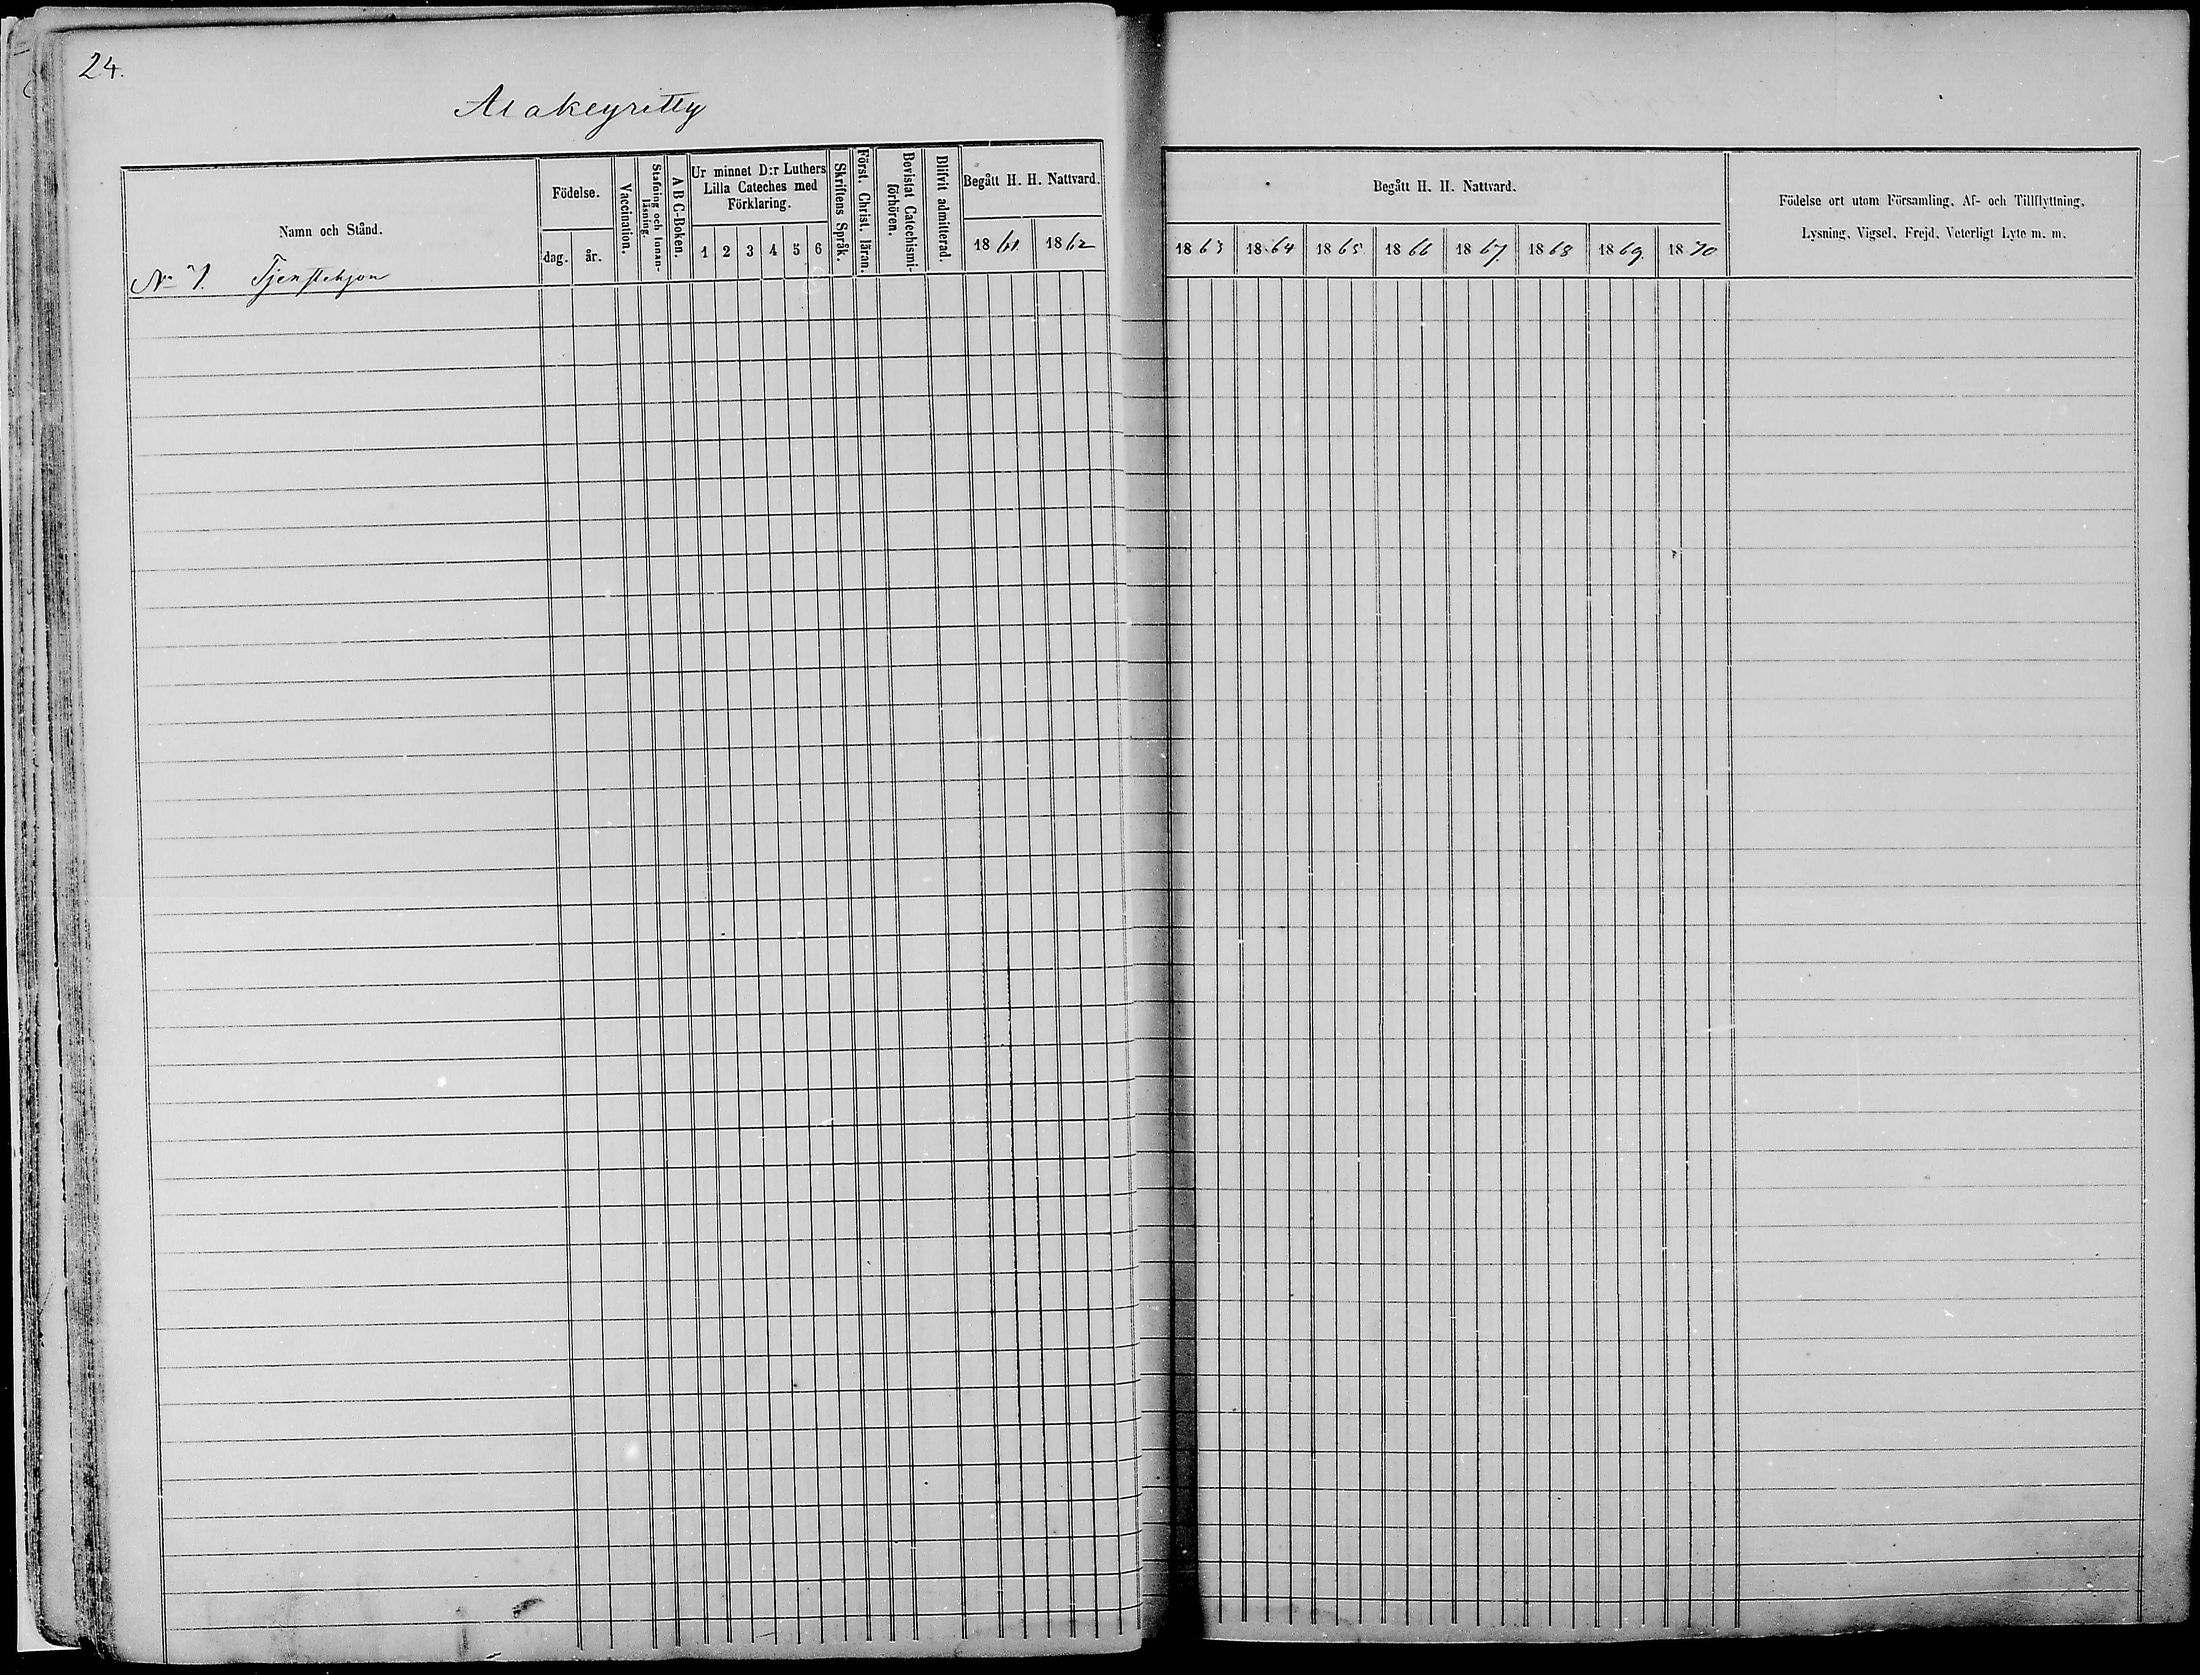 24.
Alakeyritty
Namn och Stånd.
Födelse.
dag.
år.
Vaccination.
Stafning och Innan-
läsning.
A B C-Boken.
Ur minnet D:r Luthers
Lilla Cateches med
Förklaring.
1 2 3 4 5 6
Skriftens Språk.
Först. Christ. läran.
Bevistat Catechismi-
förhören.
Blifvit admitterad.
Begått H. H. Nattvard.
1861 1862
No 1. Tjenstehjon
Begått H. H. Nattvard.
1863 1864 1865 1866 1867 1868 1869 1870
Födelse ort utom Församling, Af- och Tillflyttning,
Lysning, Vigsel, Frejd, Veterligt Lyte m. m.